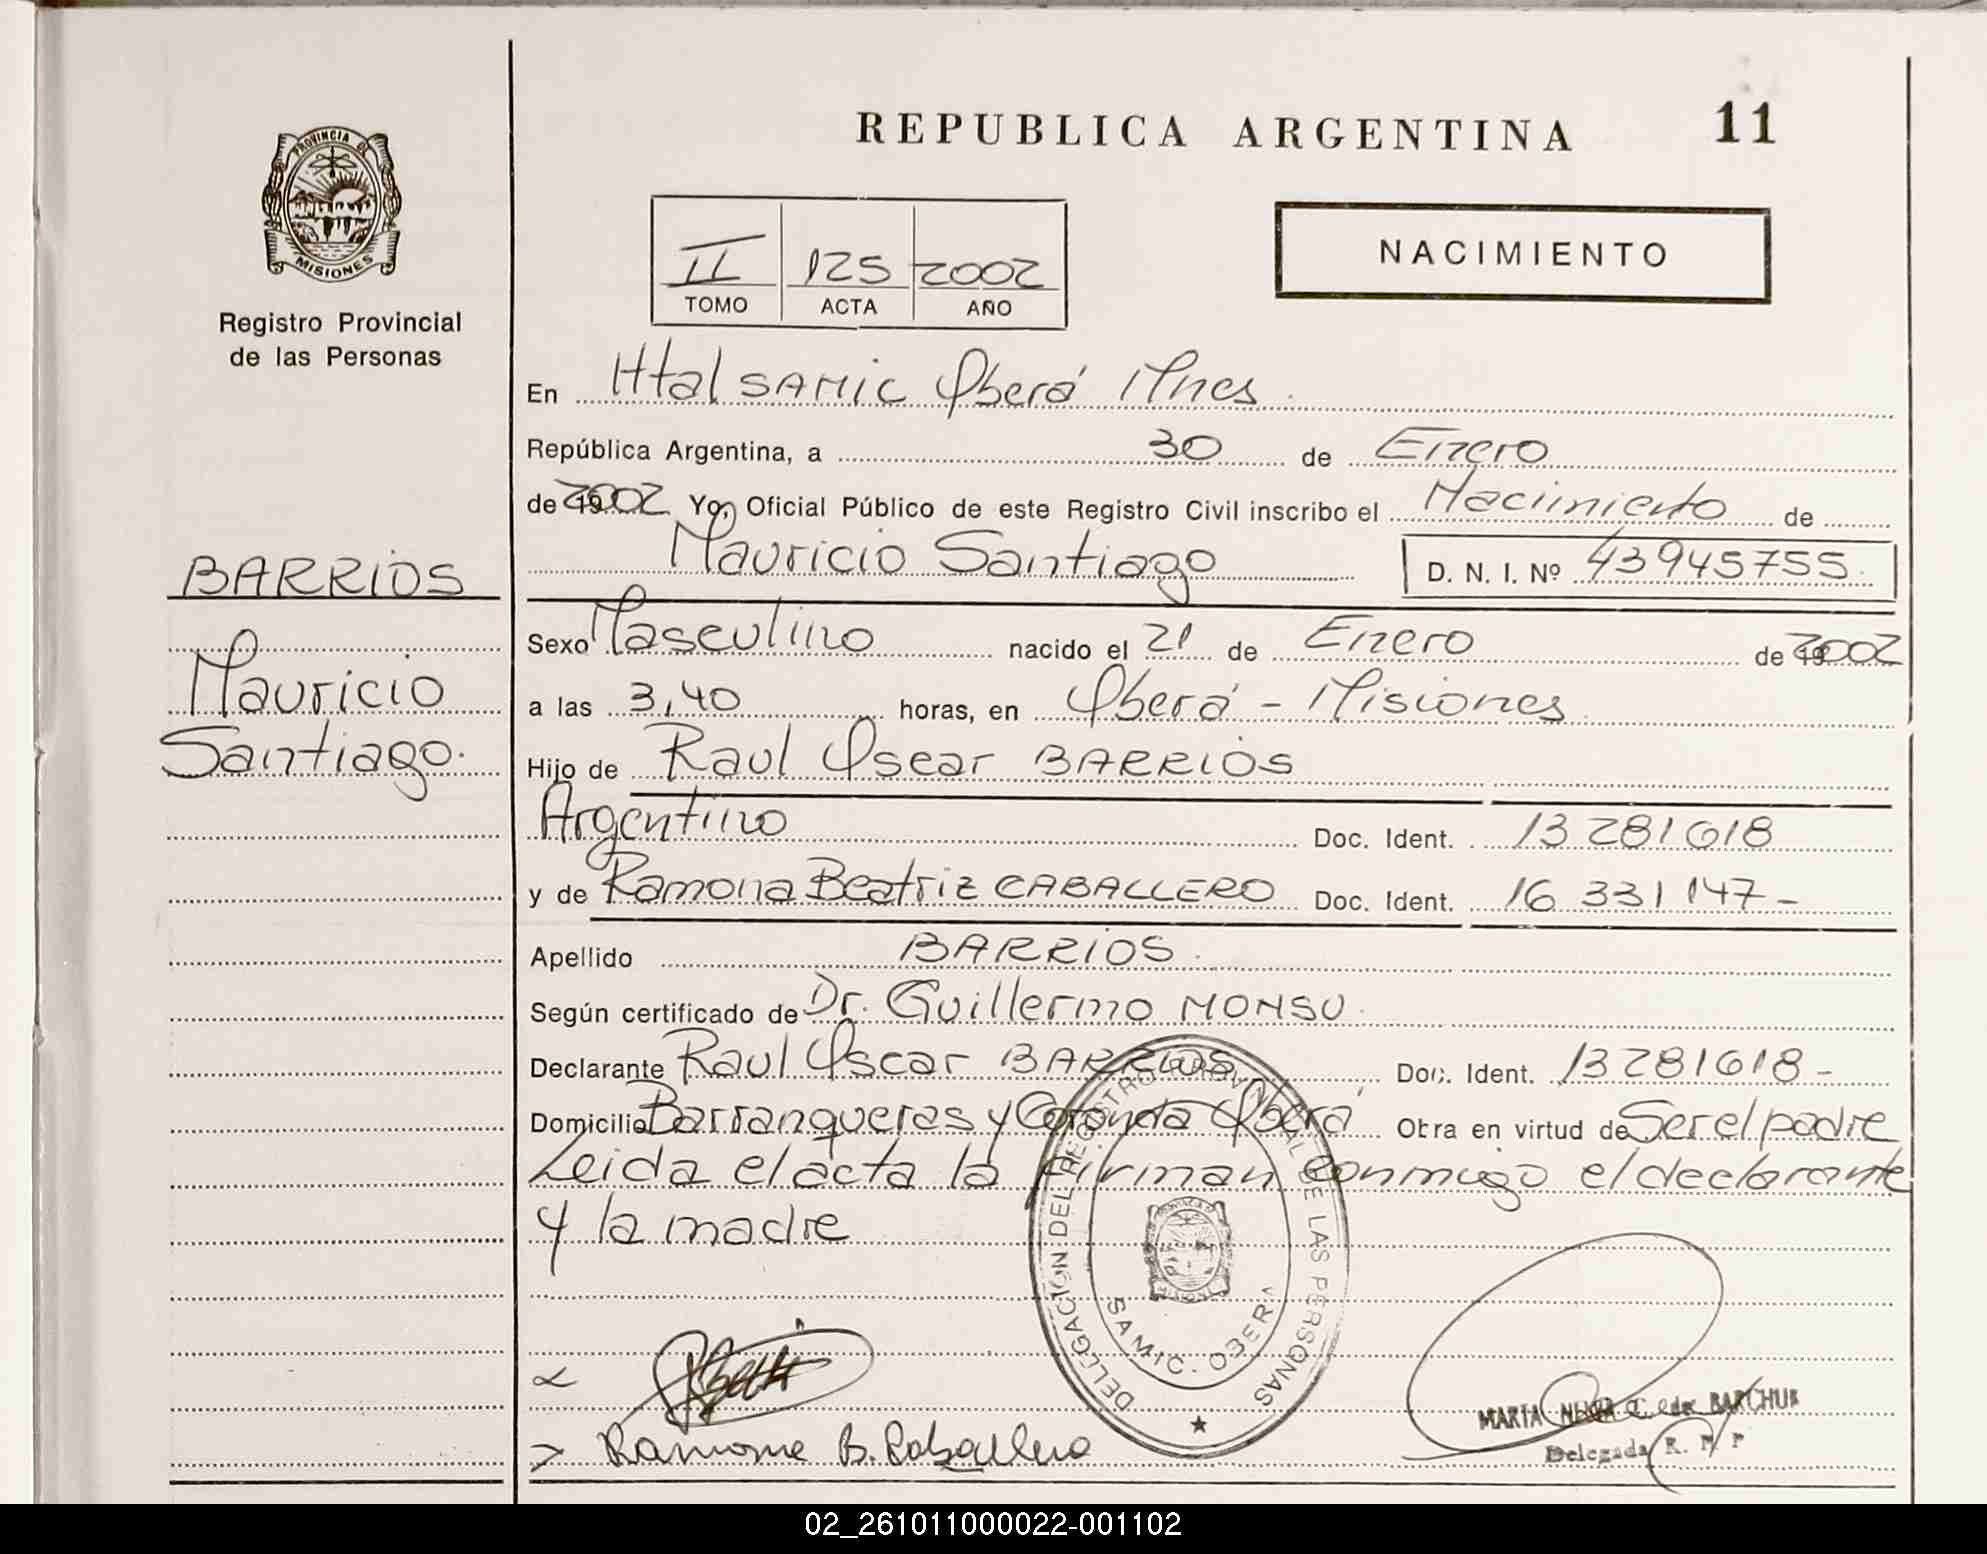 REPUBLICA ARGENTINA 11
PROVINCIA DE
MISIONES
Registro Provincial
de las Personas
II 125 2002
TOMO ACTA AÑO
NACIMIENTO
En Httal SAMIC Oberá Mnes.
República Argentina, a 30 de Enero
de 2002 Yo, Oficial Público de este Registro Civil inscribo el Nacimiento de
Mauricio Santiago D. N. I. Nº 43945755.
BARRIOS
Mauricio
Santiago.
Sexo Masculino nacido el 21 de Enero de 2002
a las 3,40 horas, en Oberá - Misiones
Hijo de Raul Oscar BARRIOS
Argentino Doc. Ident. 13 281 618
y de Ramona Beatriz CABALLERO Doc. Ident. 16 331 147-
Apellido BARRIOS.
Según certificado de Dr. Guillermo MONSU.
Declarante Raul Oscar BARRIOS Doc. Ident. 13281618-
Domicilio Barranqueras y Coronda Oberá Obra en virtud de Ser el padre
Leida el acta la firman conmigo el declarante
y la madre
DELEGACION DEL REGISTRO PROVINCIAL DE LAS PERSONAS
SAMIC. OBERA
Ramona B. Caballero
MARIA T. de BARCHUK
Delegada R. P. P
02_261011000022-001102